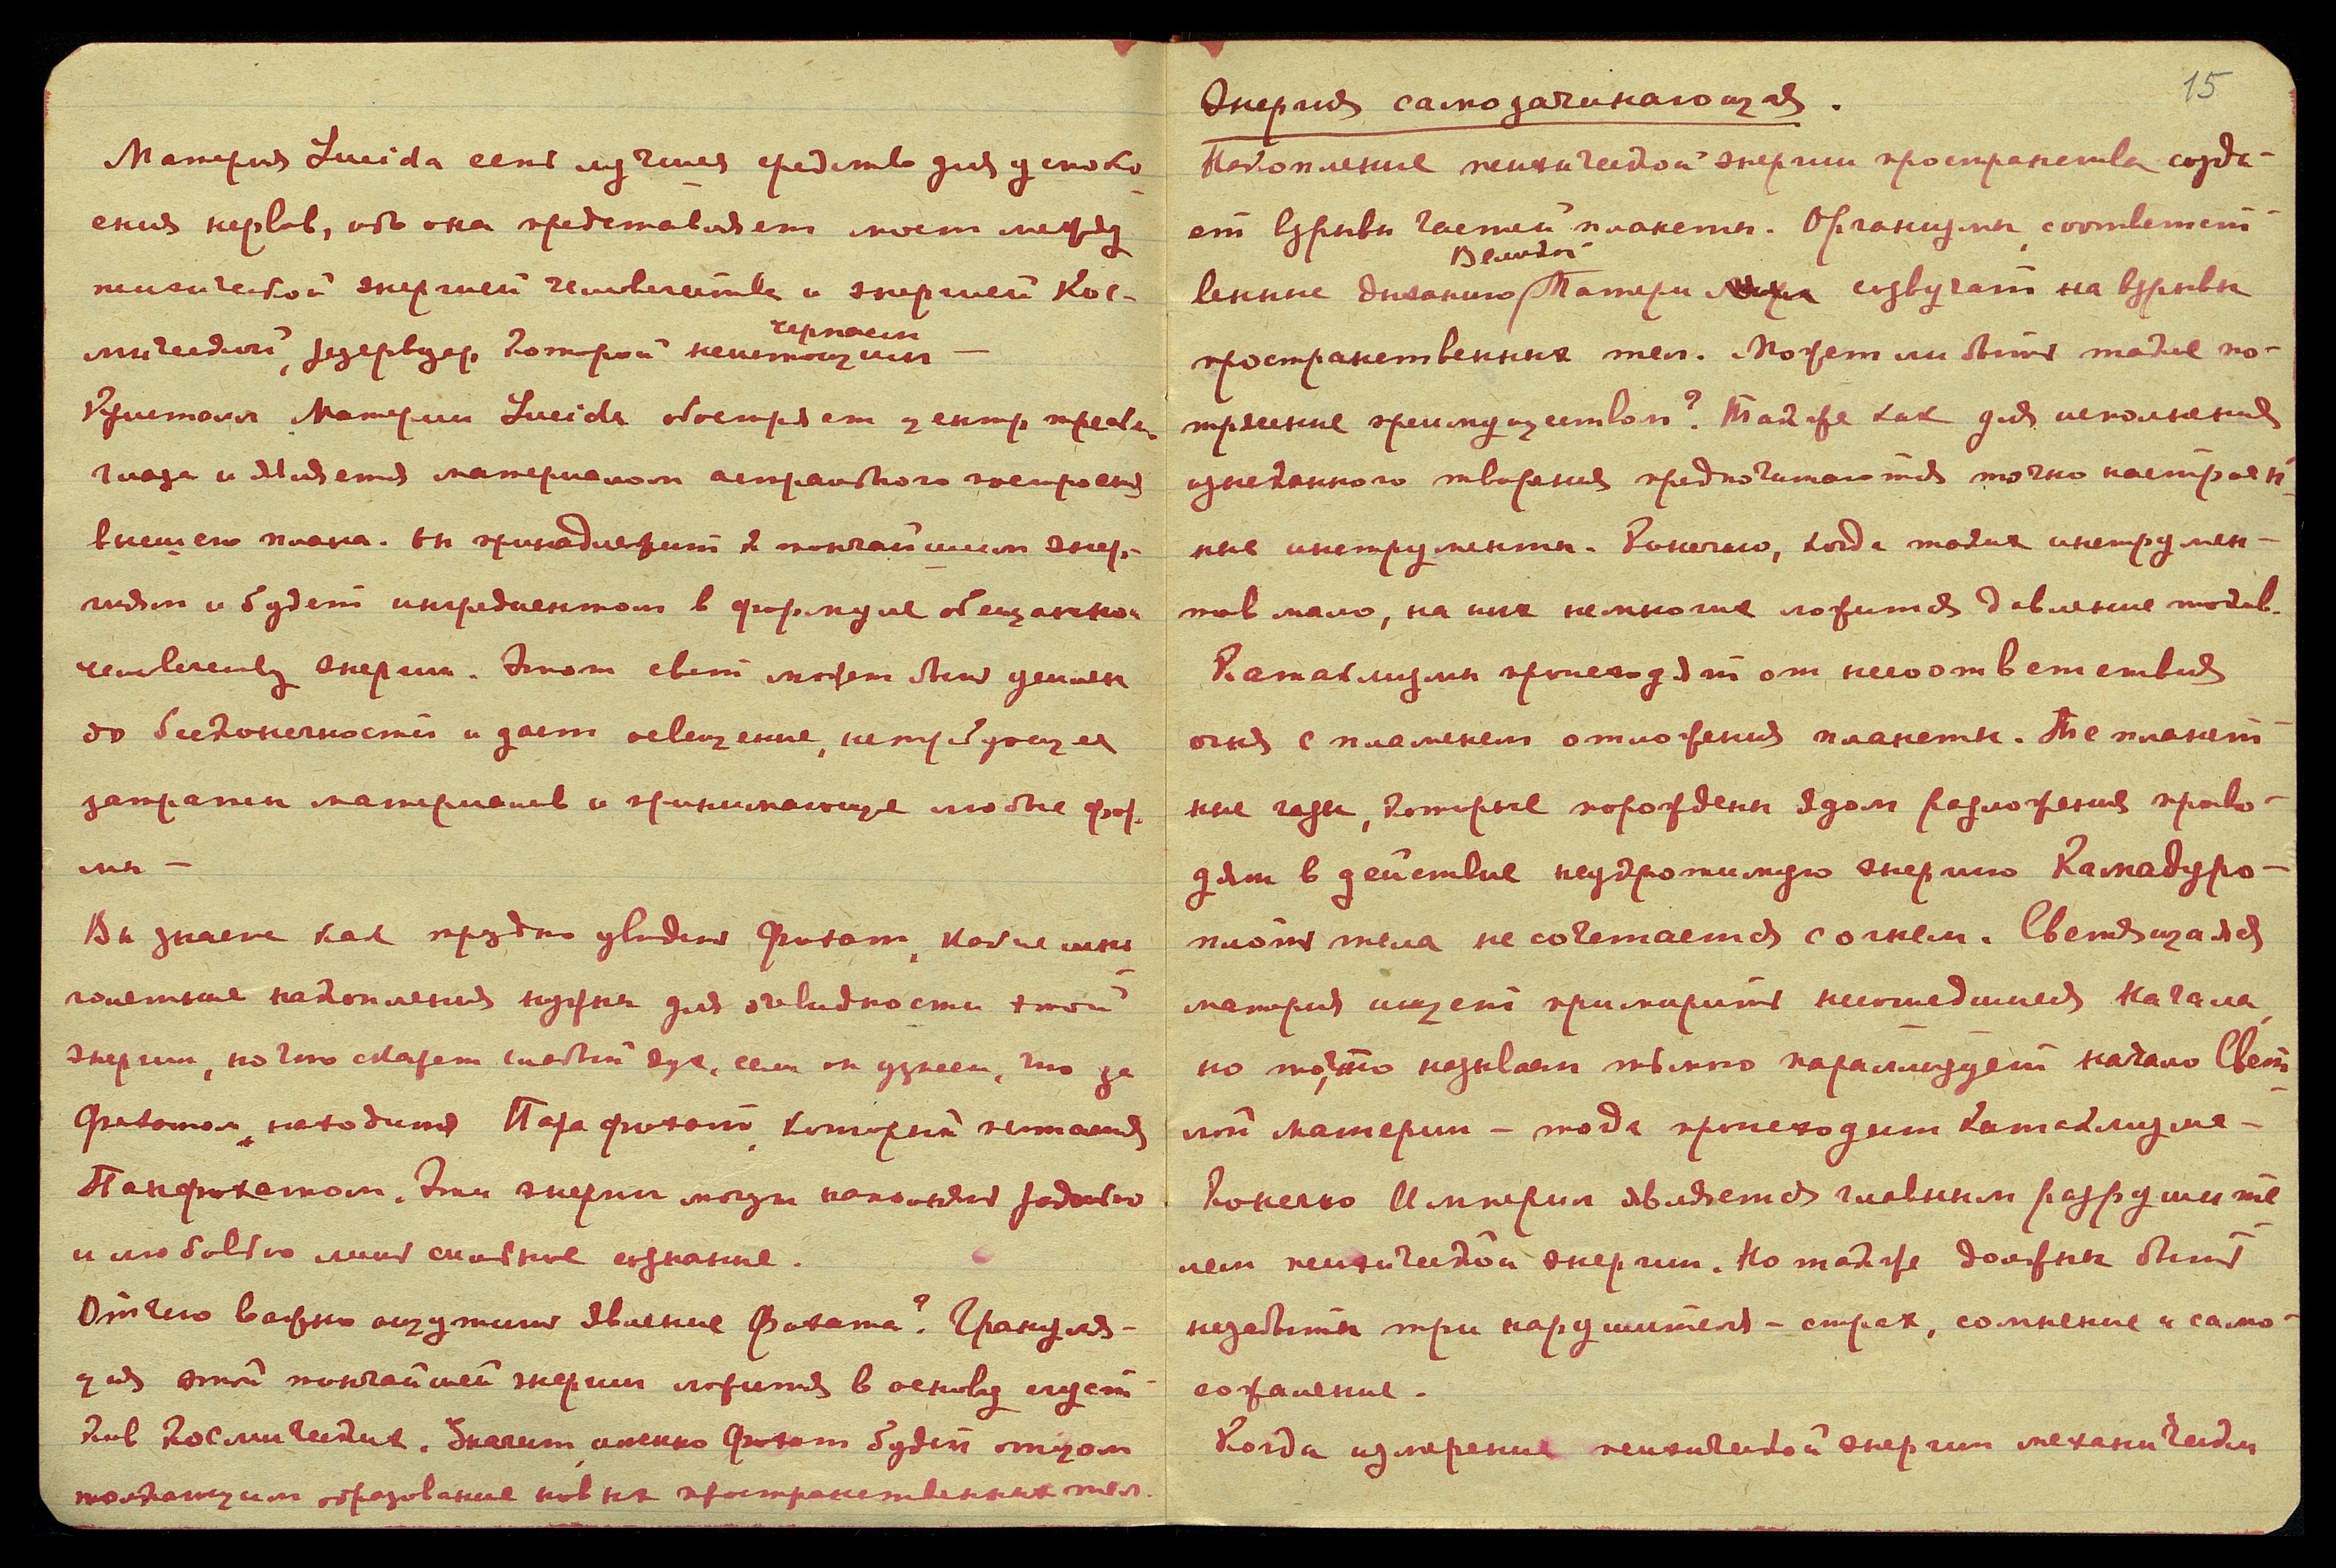 Материя Lucida есть лучшее средство для успоко
ения нервов, ибо она представляет мост между
психической энергией человечества и энергией Кос-
мической, резервуар которой неистощим —
черпаем
Кристалл Материи Lucida обостряет центр третьего
глаза и является материалом астрального построения
высшего плана. Он принадлежит к тончайшим энер-
гиям и будет ингредиентом в формуле обещанной
человечеству энергии. Этот свет может быть усилен
до бесконечности и дает освещение, нетребующее
затраты материалов и принимающее любые фор-
мы —
Вы знаете как трудно увидеть Фохат, какие мно
голетние накопления нужны для очевидности этой
энергии, но что скажет слабый дух, если он узнает, что за
Фохатом находится Парафохат, который питается
Панфохатом. Эти энергии могут наполнять радостью
и любовью лишь сильные сознание.
Отчего важно ощутить явление Фохата? Грануля-
ция этой тончайшей энергии ложится в основу сгуст
ков космических. Значит, именно Фохат будет отцом
толкающим образование новых пространственных тел.
15
Энергия самозачинающая.
Накопление психической энергии пространства созда-
ет взрывы частей планеты. Организмы, соответст
венные дыханию Матери созвучат на взрывы
Великой
пространственных тел. Может ли быть такие по-
трясение преимуществом? Также как для исполнения
изысканного творения предпочитаются точно настроен
ные инструменты. Конечно, когда таких инструмен-
тов мало, на них немногих ложится давление токов.
Катаклизмы происходят от несоответствия
огня с пламенем отложения планеты. Те планет
ные газы, которые порождены ядом разложения приво-
дят в действие неукротимую энергию Камадуро-
плоть тела не сочетается с огнем. Светящаяся
материя ищет примирить несошедшиеся начала,
но то, что называем тьмою парализует начало Свет
лой материи — тогда происходит катаклизме —
Конечно Империл является главным разрушите
лем психической энергии. Но также должны быть
незабыты три нарушителя — страх, сомнение и само-
сожаление.
Когда измерение психической энергии механически